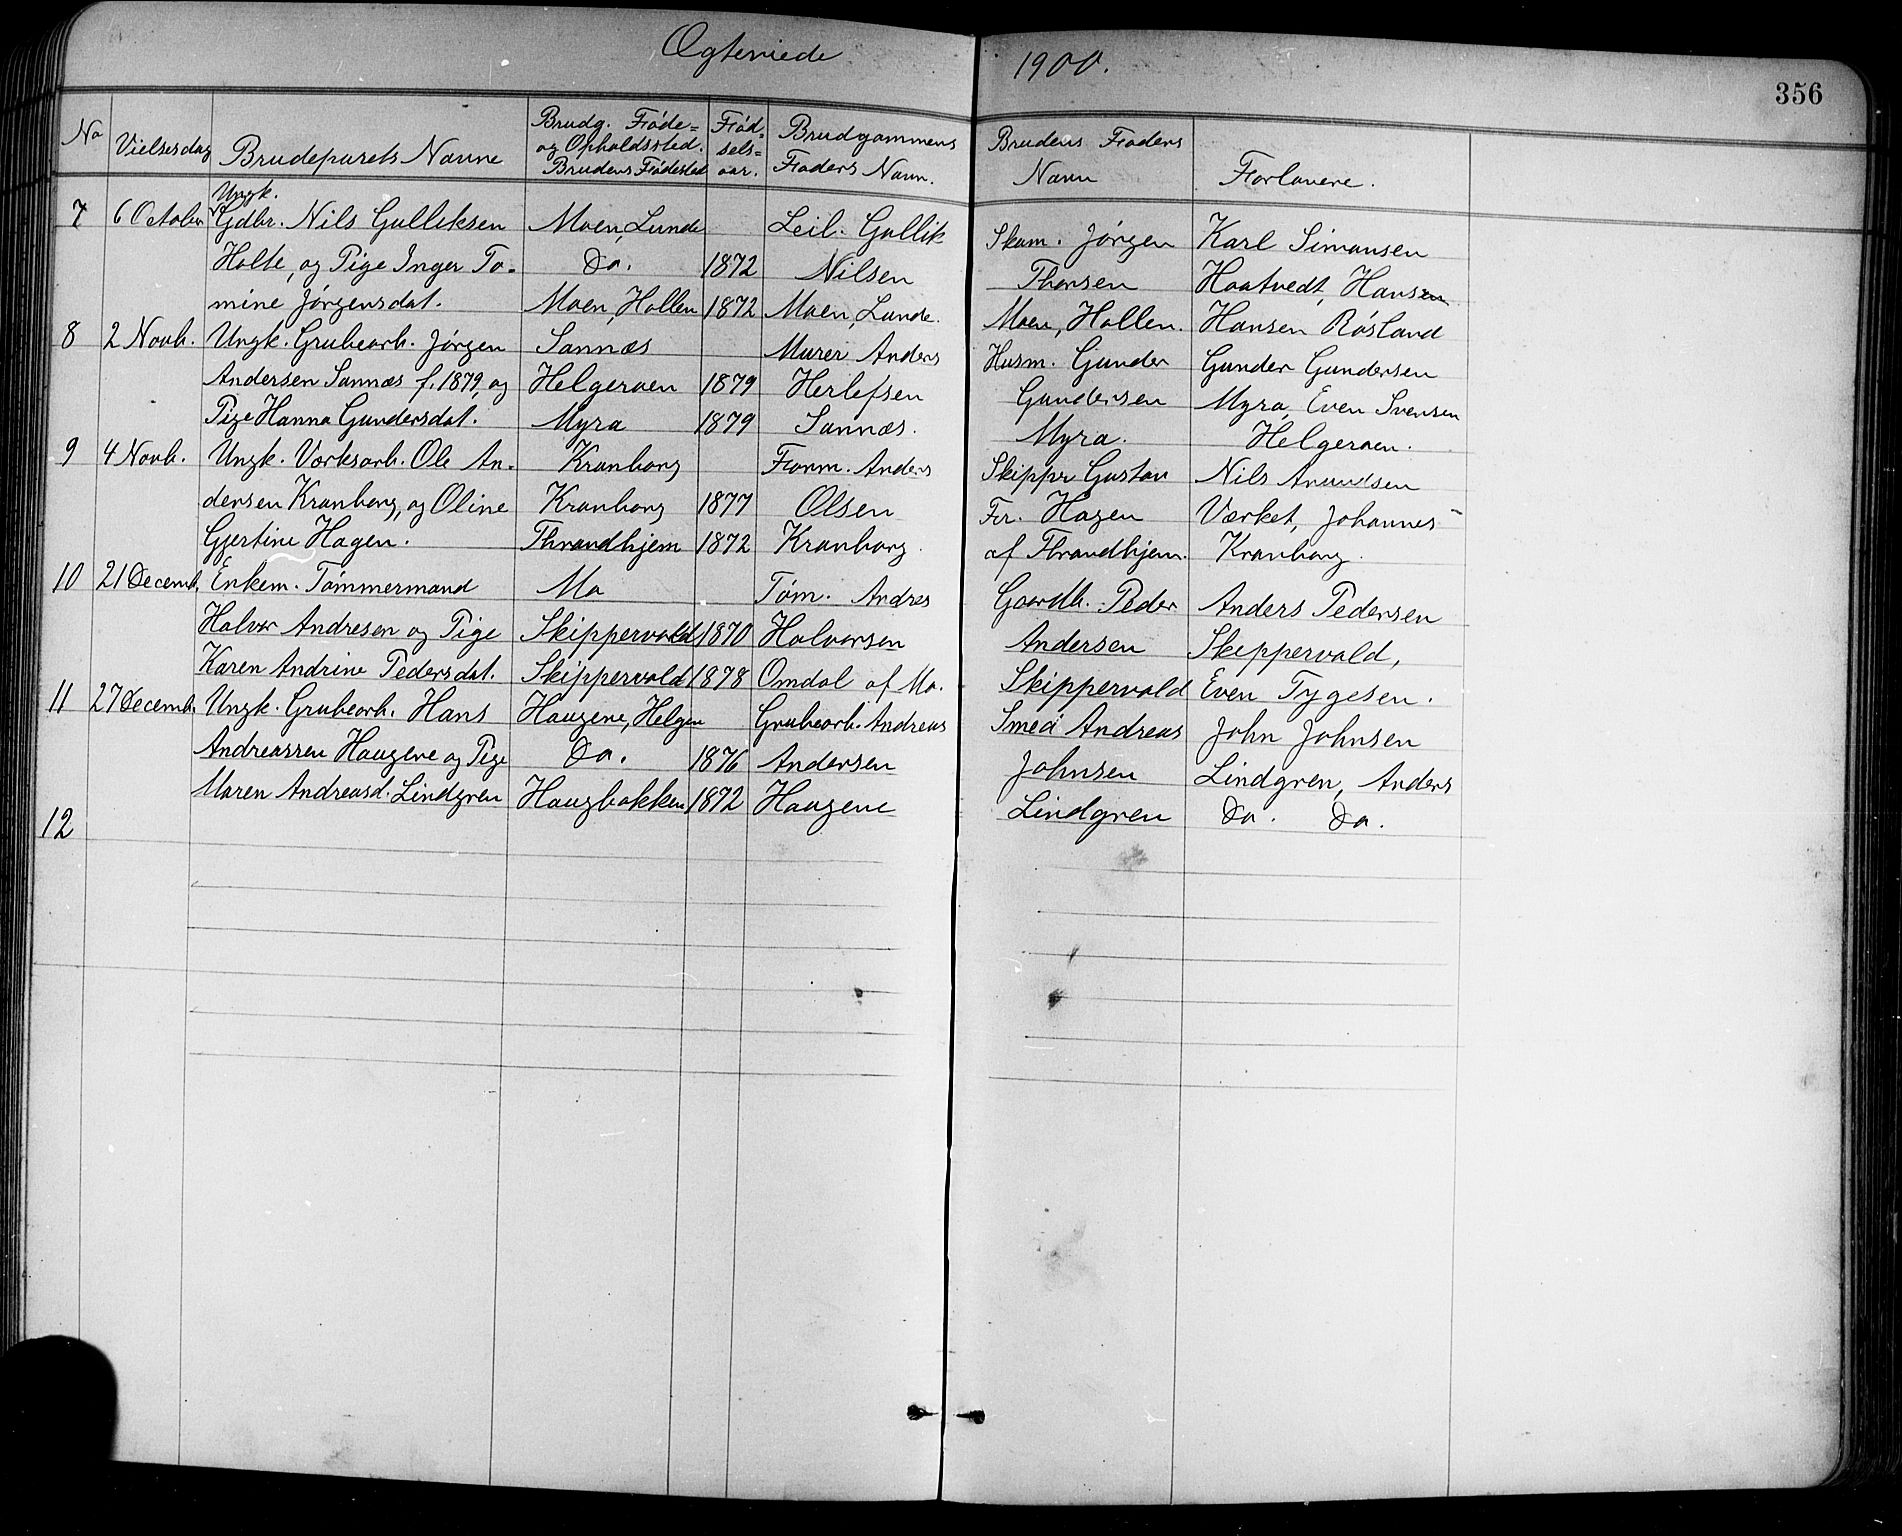 Ægteviede 1900.
356
No Vielsesdag Brudeparets Navne Brudg. Føde= og Opholdssted. Brudens Fødested Fød= sels= aar. Brudgommens Faders Navn. Brudens Faders Navn Forlovere.
Ungk.
7 6 October Gdbr. Nils Gulliksen Moen, Lunde Leil. Gullik Skom. Jørgen Karl Simonsen
Holte, og Pige Inger To- Do. 1872 Nilsen Thorsen Haatvedt, Hans
mine Jørgensdat. Moen, Hollen 1872 Moen, Lunde. Moen, Hollen. Hansen Røsland
8 2 Novb. Ungk. Grubearb. Jørgen Sannæs Murer Anders Husm. Gunder Gunder Gundersen
Andersen Sannæs f. 1879, og Helgeroen 1879 Herlefsen Gundersen Myra, Even Svensen
Pige Hanna Gundersdat. Myra 1879 Sannæs. Myra. Helgeroen.
9 4 Novb. Ungk. Værksarb. Ole An- Kranborg Form. Anders Skipper Gustav Nils Amundsen
dersen Kranborg, og Oline Kranborg 1877 Olsen Fr. Hagen Værket, Johannes
Gjertine Hagen. Throndhjem 1872 Kranborg. af Throndhjem. Kranborg.
10 21 Decemb. Enkem. Tømmermand Mo Tøm. Andres Gaardb. Peder Anders Pedersen
Halvor Andresen og Pige Skippervold 1870 Halvorsen Andersen Skippervold,
Karen Andrine Pedersdat. Skippervold 1878 Omdal af Mo. Skippervold Even Tygesen.
11 27 Decemb. Ungk. Grubearb. Hans Haugene, Helgen Grubearb. Andreas Smed Andreas John Johnsen
Andreassen Haugene og Pige Do. 1876 Andersen Johnsen Lindgren, Anders
Maren Andreasd. Lindgren Haugbakken 1872 Haugene Lindgren Do. Do.
12